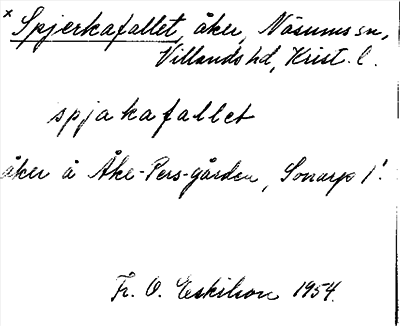 × Spjerkafallet, åker, Näsums sn,
Villands hd, Krist. l.
spjakafallet
åker å Åke-Pers-gården, Sonarp 1¹.
Fr. O. Eskilson 1954.